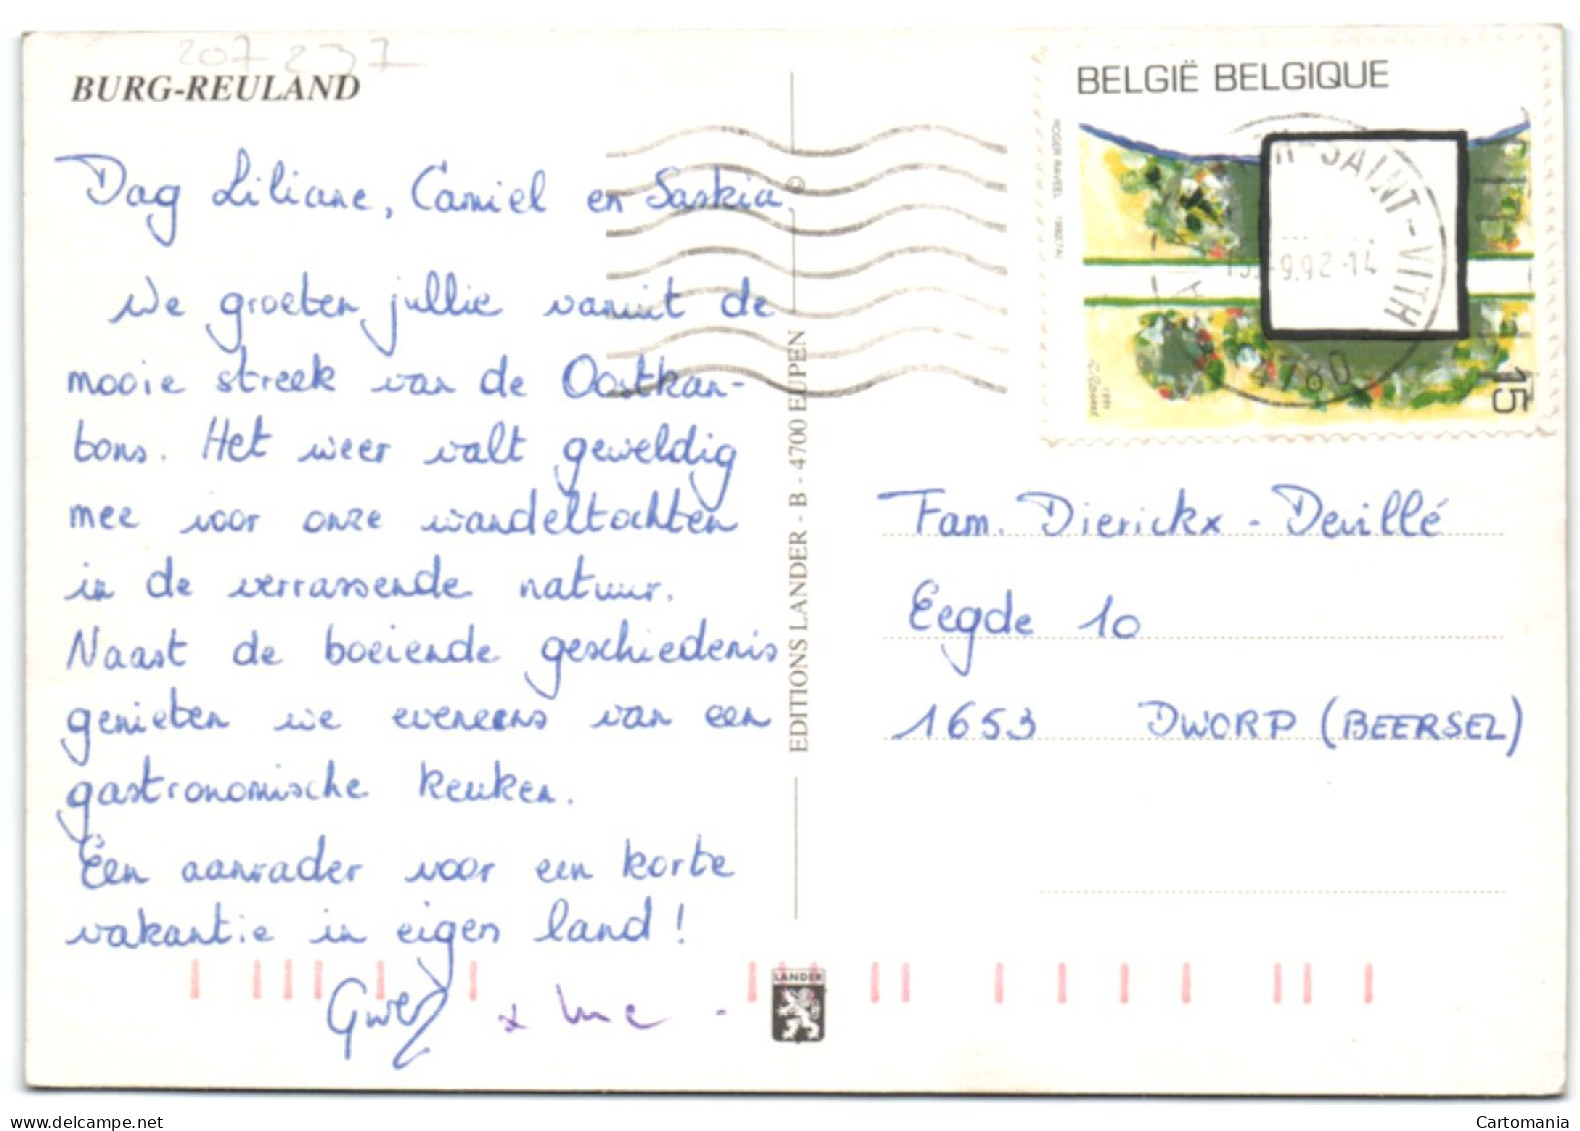 207237
BURG-REULAND
Dag Liliane, Camiel en Saskia.
We groeten jullie vanuit de
mooie streek van de Oostkan-
tons. Het weer valt geweldig
mee voor onze wandeltochten
in de verrassende natuur.
Naast de boeiende geschiedenis
genieten we eveneens van een
gastronomische keuken.
Een aanrader voor een korte
vakantie in eigen land!
Gwen + Luc -
EDITIONS LANDER - B - 4700 EUPEN
©
LANDER
BELGIË BELGIQUE
ROGER RAVEEL 1992
15
SAINT-VITH
-9.92-14
4780
Fam. Dierickx - Devillé
Eegde 10
1653 DWORP (BEERSEL)
Cartomania